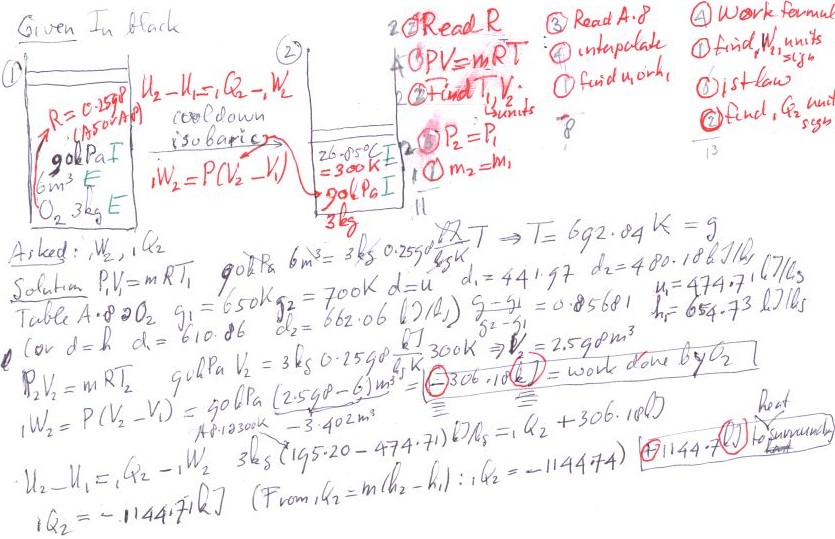 Given In black
①
R = 0.2598
(A5 or A8)
90kPa I
6m³ E
O₂ 3kg E
U₂-U₁=₁Q₂-₁W₂
cooldown
isobaric
₁W₂=P(V₂-V₁)
②
26.85°C E
=300K
90kPa I
3kg
2 ② Read R
4 ① PV=mRT
2 ② Find T₁, V₂
units
2 ③ P₂=P₁
1 ① m₂=m₁
11
③ Read A.8
④ interpolate
① find work,
8
④ Work formul
① find ₁W₂, units
sign
① 1st law
② find ₁Q₂ unit
sign
13
Asked: ₁W₂, ₁Q₂
Solution P₁V₁=mRT₁ 90kPa 6m³=3kg 0.2598 kJ/kgK T ⇒ T= 692.84K = g
Table A.8 O₂ g₁=650K g₂=700K d=u d₁=441.97 d₂=480.18kJ/kg u₁=474.71kJ/kg
for d=h d₁=610.86 d₂=662.06 kJ/kg) g-g₁/g₂-g₁ = 0.85681 h₁=654.73 kJ/kg
P₂V₂=mRT₂ 90kPa V₂=3kg 0.2598 kJ/kgK 300K ⇒ V₂=2.598m³
₁W₂=P(V₂-V₁)=90kPa (2.598-6)m³ = -306.18kJ = work done by O₂
A8.12 300K -3.402m³
U₂-U₁=₁Q₂-₁W₂ 3kg(195.20-474.71)kJ/kg=₁Q₂+306.18kJ
₁Q₂=-1144.71kJ (From ₁Q₂=m(h₂-h₁):₁Q₂=-1144.74) +1144.7kJ Heat to surroundin